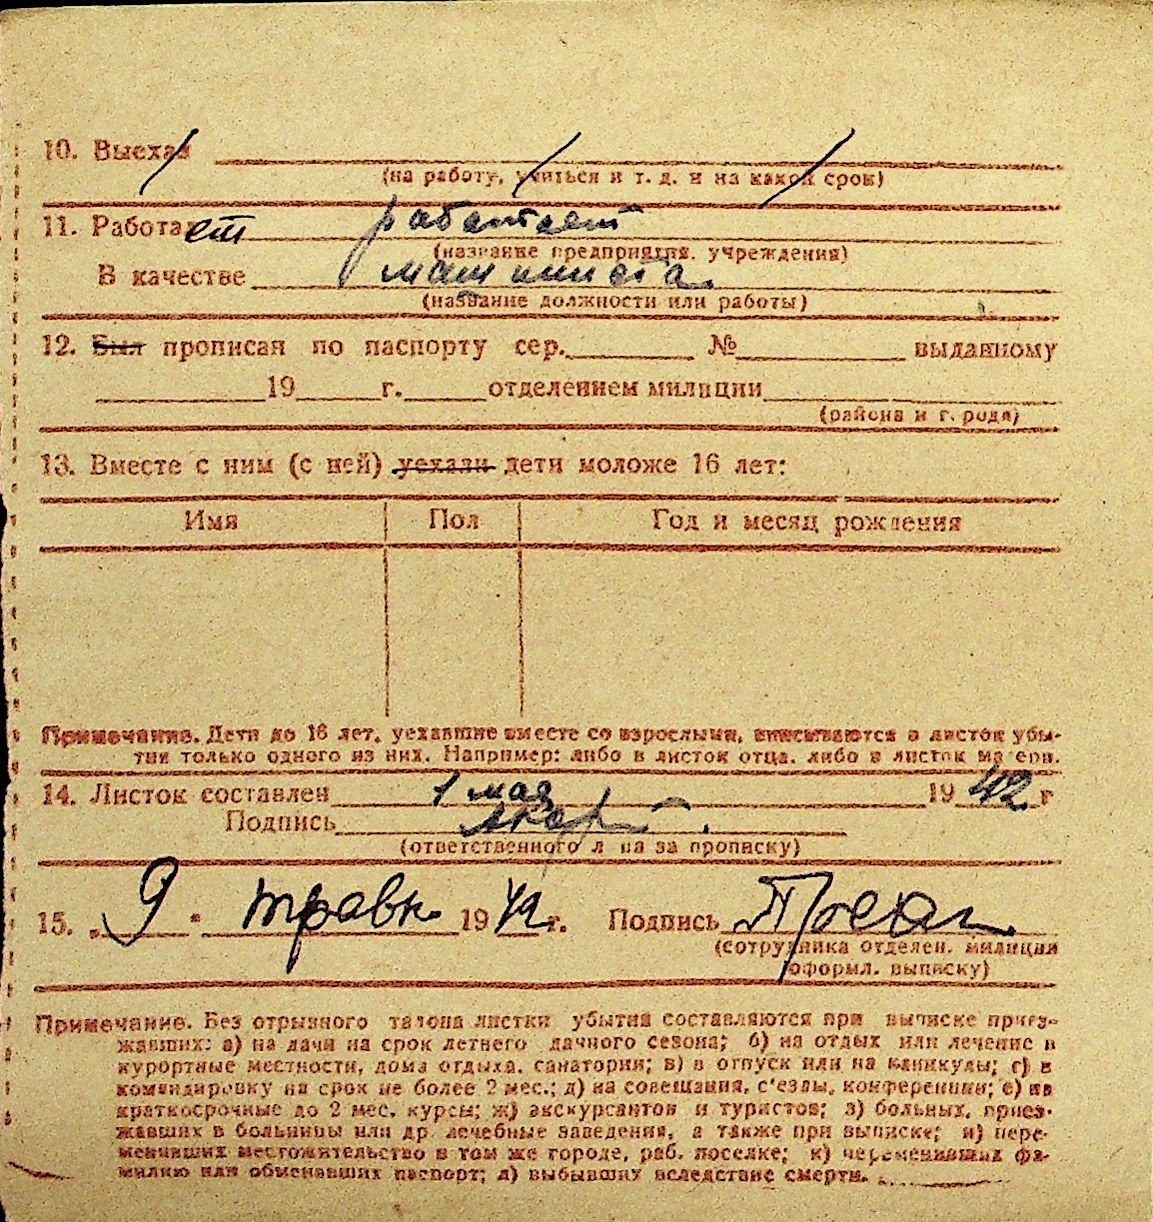 10. Выехал
(на работу, учиться и т. д. и на какой срок)
11. Работает работает
(название предприятия, учреждения)
В качестве машиниста.
(название должности или работы)
12. Был прописан по паспорту сер. № выданному
19 г. отделением милиции
(района и города)
13. Вместе с ним (с ней) уехали дети моложе 16 лет:
Имя Пол Год и месяц рождения
Примечание. Дети до 16 лет, уехавшие вместе со взрослыми, вписываются в листок убы-
тия только одного из них. Например: либо в листок отца, либо в листок матери.
14. Листок составлен 1 мая 1942 г
Подпись
(ответственного лица за прописку)
15. „9" травн 1942 г. Подпись
(сотрудника отделен. милиции
оформл. выписку)
Примечание. Без отрывного талона листки убытия составляются при выписке приез-
жавших: а) на дачи на срок летнего дачного сезона; б) на отдых или лечение в
курортные местности, дома отдыха, санатории; в) в отпуск или на каникулы; г) в
командировку на срок не более 2 мес.; д) на совещания, с'езды, конференции; е) на
краткосрочные до 2 мес. курсы; ж) экскурсантов и туристов; з) больных, приез-
жавших в больницы или др. лечебные заведения, а также при выписке; и) пере-
менивших местожительство в том же городе, раб. поселке; к) переменивших фа-
милию или обменявших паспорт; л) выбывших вследствие смерти.